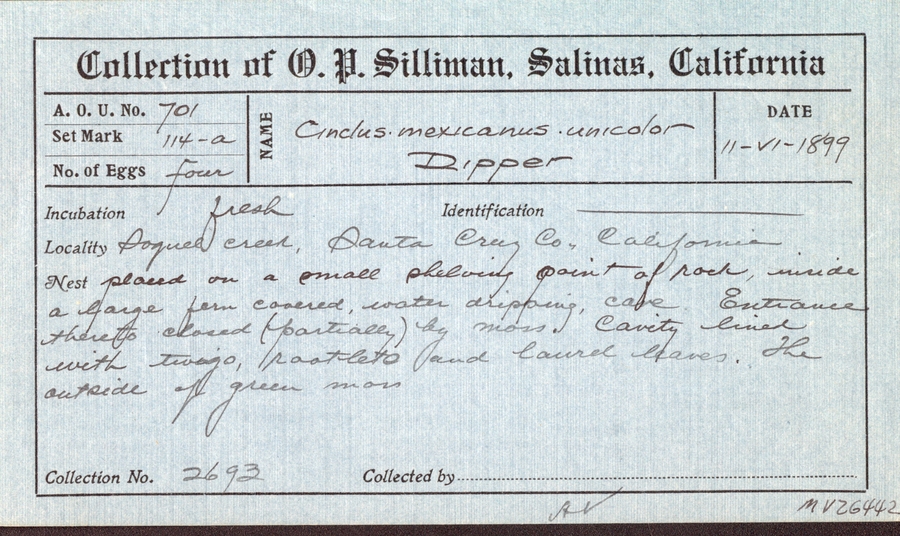 Collection of O. P. Silliman, Salinas, California
A. O. U. No. 701
Set Mark 114-a
No. of Eggs four
NAME
Cinclus · mexicanus · unicolor
Dipper
DATE
11-VI-1899
Incubation fresh
Identification
Locality Soquel creek, Santa Cruz Co., California
Nest placed on a small shelving point of rock, inside
a large fern covered, water dripping, cave. Entrance
thereto closed (partially) by moss. Cavity lined
with twigs, rootlets and laurel leaves. The
outside of green moss
Collection No. 2693
Collected by
AV
MVZ6442